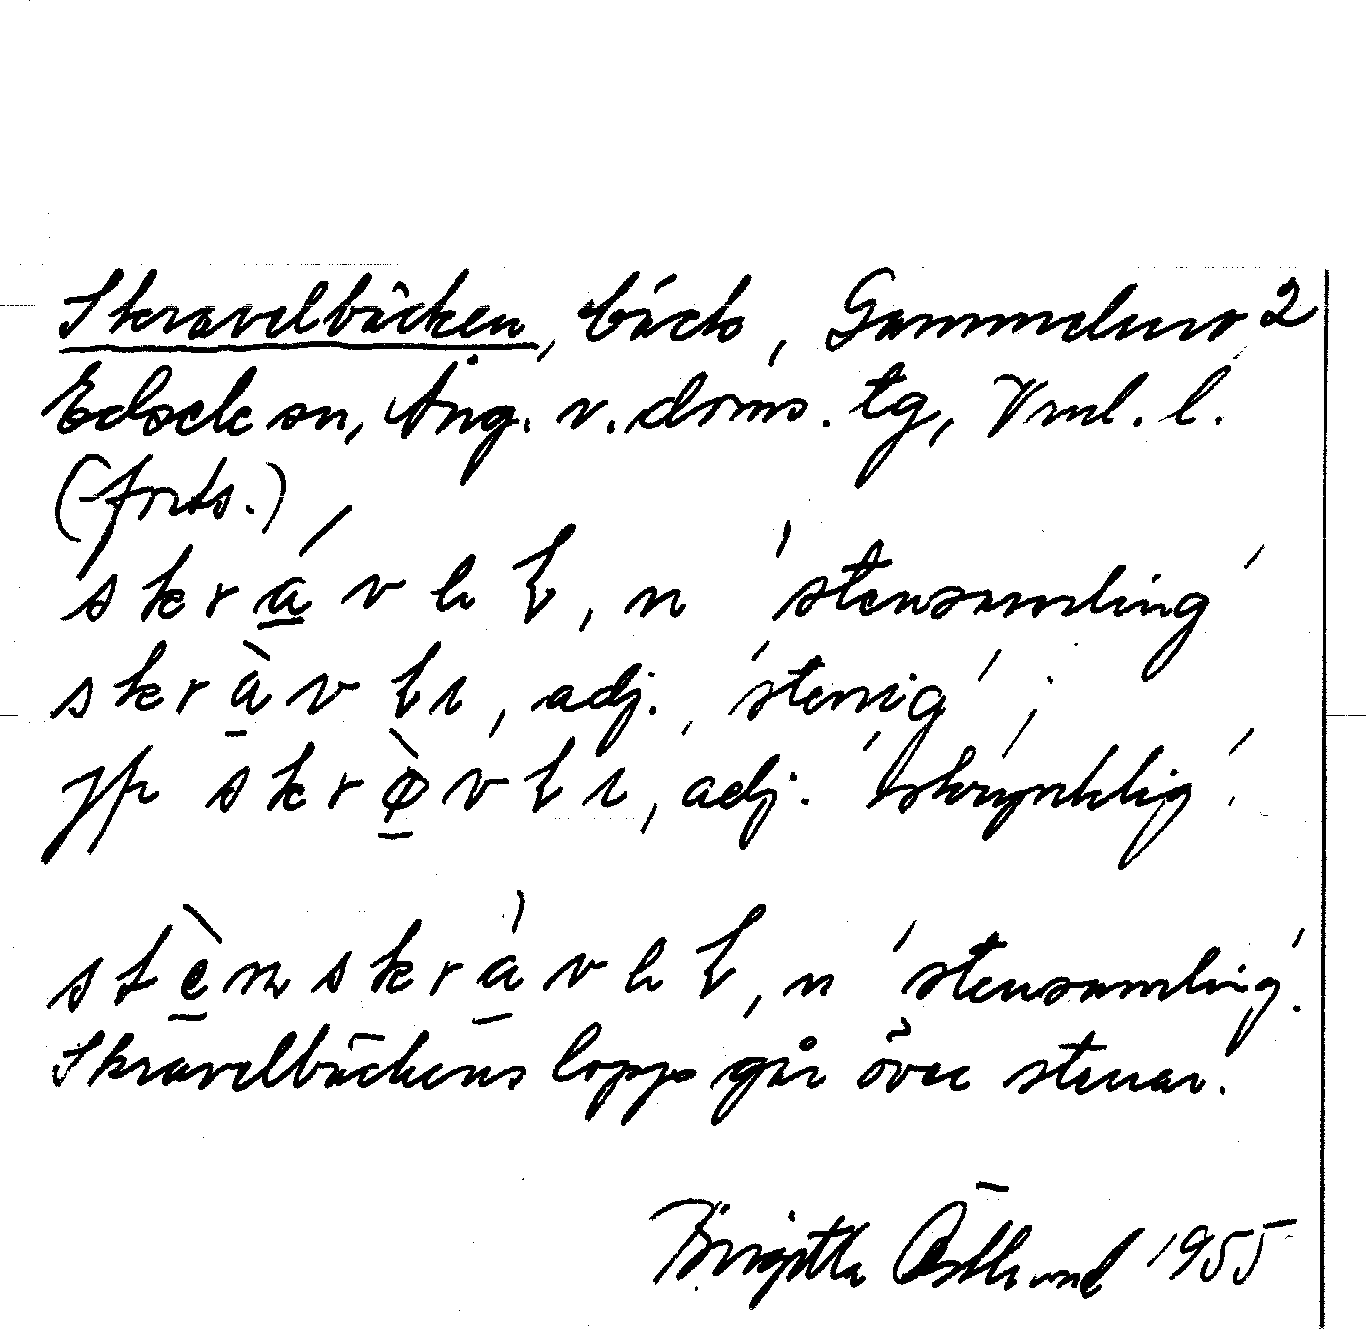 Skravelbäcken, bäck, Gammelurv 2
Edsele sn, Ång. v. doms. tg, Vnl. l.
(forts.)
skrávəł, n 'stensamling'
skràvłı, adj., 'stenig';
jfr skrø̀vłı, adj. 'skrynklig'.
stènskràvəł, n 'stensamling'.
Skravelbäckens lopp går över stenar.
Birgitta Östlund 1955